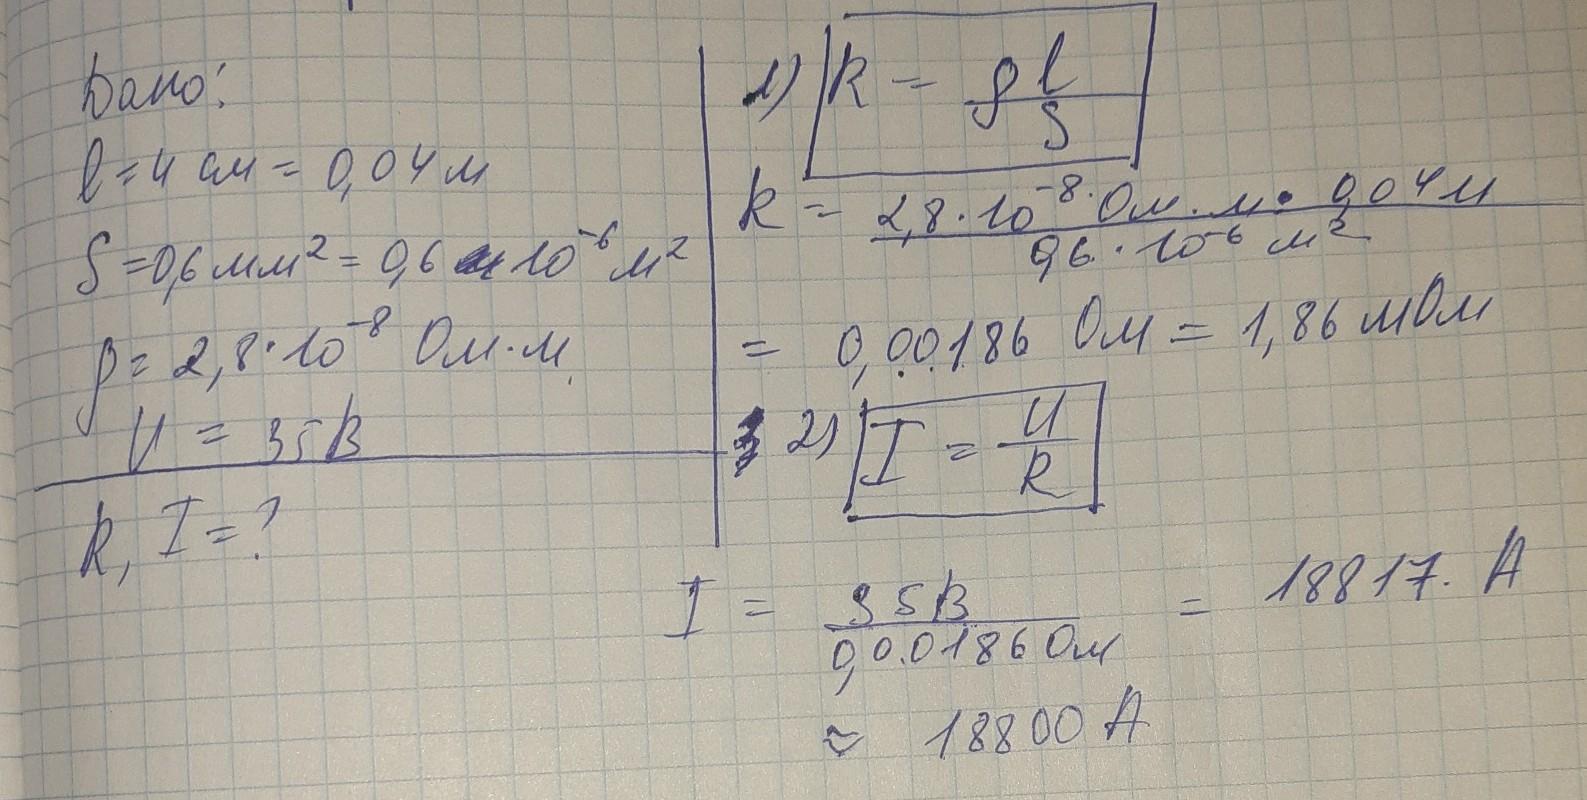 Дано:
l = 4 см = 0,04 м
S = 0,6 мм² = 0,6 · 10⁻⁶ м²
ρ = 2,8 · 10⁻⁸ Ом · м
U = 35 В
R, I = ?
1) R = ρ l / S
R = 2,8 · 10⁻⁸ · Ом · м · 0,04 м / 0,6 · 10⁻⁶ м²
= 0,00186 Ом = 1,86 мОм
2) I = U / R
I = 35 В / 0,00186 Ом = 18817. А
≈ 18800 А